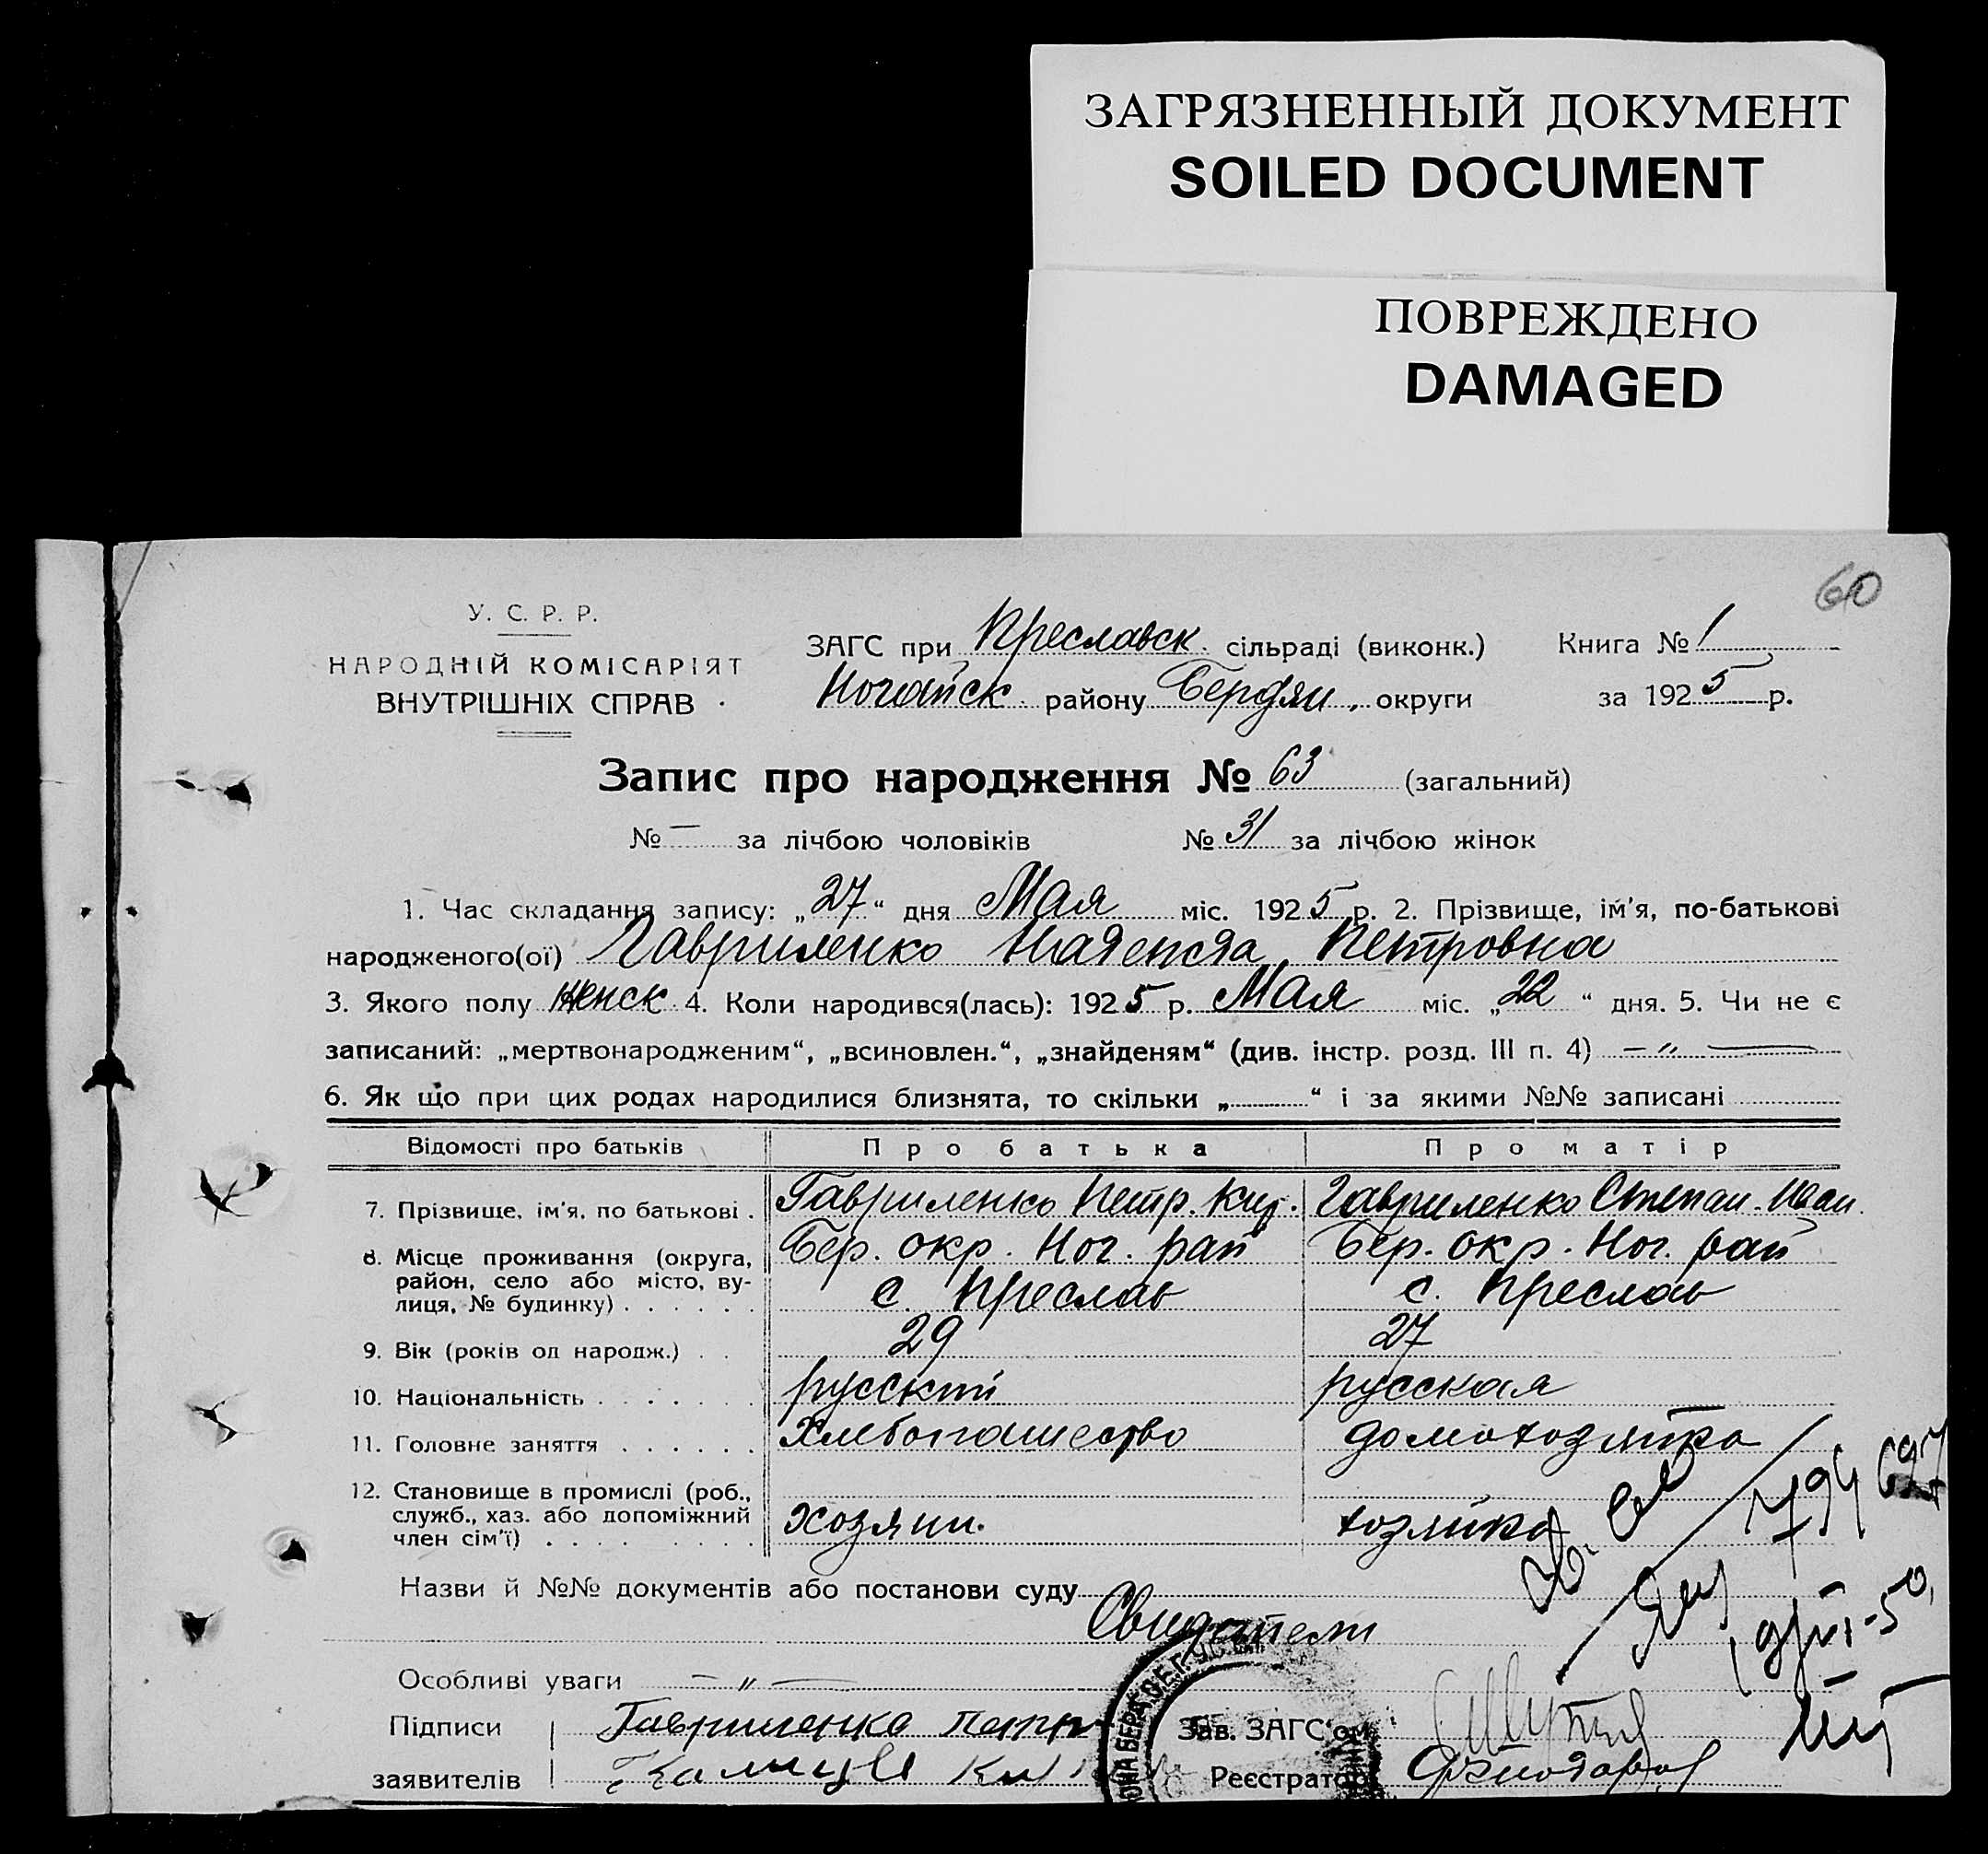 ЗАГРЯЗНЕННЫЙ ДОКУМЕНТ
SOILED DOCUMENT
ПОВРЕЖДЕНО
DAMAGED
60
У. С. Р. Р.
НАРОДНІЙ КОМІСАРІЯТ
ВНУТРІШНІХ СПРАВ
ЗАГС при Преславск. сільраді (виконк.) Книга № 1
Ногайск. району Бердян. округи за 1925 р.
Запис про народження № 63 (загальний)
№ — за лічбою чоловіків № 31 за лічбою жінок
1. Час складання запису: „27“ дня Мая міс. 1925 р. 2. Прізвище, ім'я, по-батькові
народженого(ої) Гавриленко Надежда Петровна
3. Якого полу женск 4. Коли народився(лась): 1925 р. Мая міс. „22“ дня. 5. Чи не є
записаний: „мертвонародженим“, „всиновлен.“, „знайденям“ (див. інстр. розд. III п. 4) — „ —
6. Як що при цих родах народилися близнята, то скільки „ “ і за якими №№ записані
Відомості про батьків Про батька Про матір
7. Прізвище, ім'я, по батькові . Гавриленко Петр. Кир. Гавриленко Степан. Иван.
8. Місце проживання (округа, Бер. окр. Ног. рай Бер. окр. Ног. рай
район, село або місто, ву-
лиця, № будинку) . . . . . . с. Преслав с. Преслав
9. Вік (років од народж.) . . 29 27
10. Національність . . . . . . . русский русская
11. Головне заняття . . . . . . Хлебопашество домохозяйка
12. Становище в промислі (роб.,
служб., хаз. або допоміжний
член сім'ї) . . . . . . . . хозяин. хозяйка
794 627
Назви й №№ документів або постанови суду
Свидетели
Особливі уваги — „ —
Підписи Гавриленко Петр Зав. ЗАГС'ом
заявителів Реєстратор